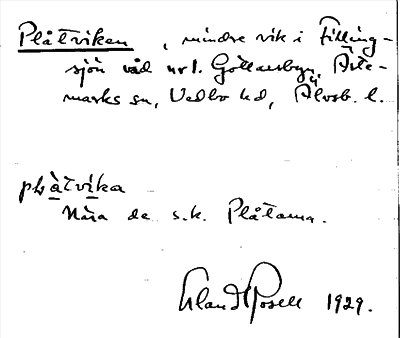 Plåtviken, mindre vik i Filling-
sjön vid nr 1. Göttersbyn, Ärte-
marks sn, Vedbo hd, Älvsb. l.
plåtvika
Nära de s.k. Plåtarna.
Erland Rosell 1929.